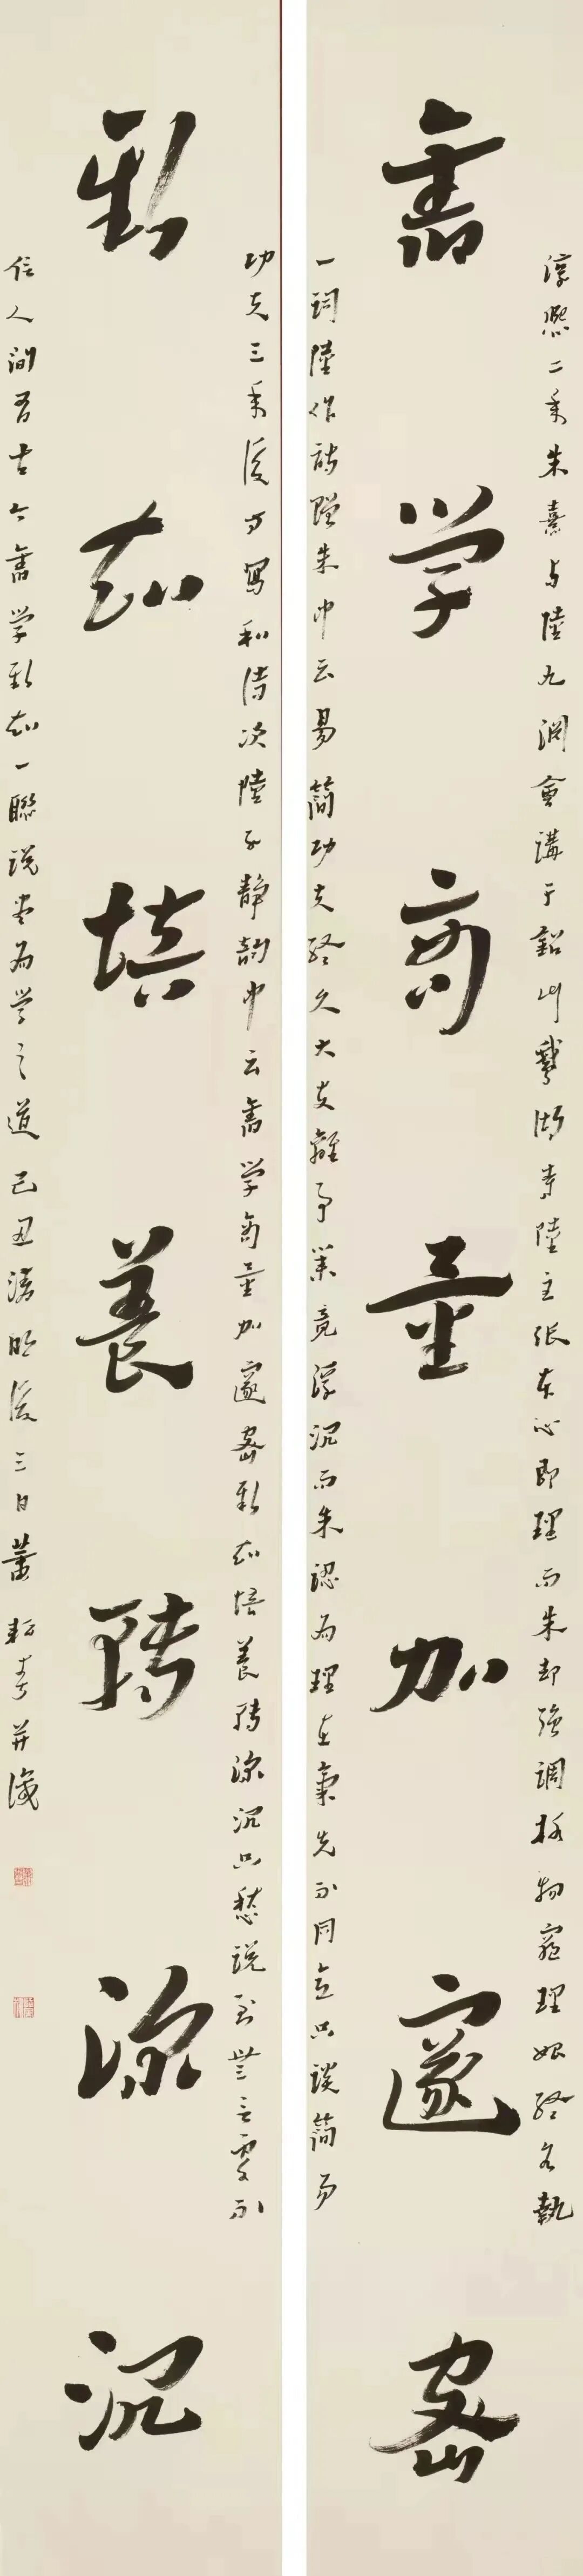 舊学商量加邃密
淳熙二年朱熹与陸九渊會講于鉛山鵝湖寺陸主張本心即理而朱却強調格物窮理始終各執
一詞陸作詩贈朱中云易簡功夫終久大支離事業竟浮沉而朱認為理在氣先不同意只談簡易
新知培養轉深沉
功夫三年後方寫和詩次陸子静韵中云舊学商量加邃密新知培養轉深沉只愁説到無言處不
信人間有古今舊学新知一聯説尽為学之道己丑清明後三日蕭 并識